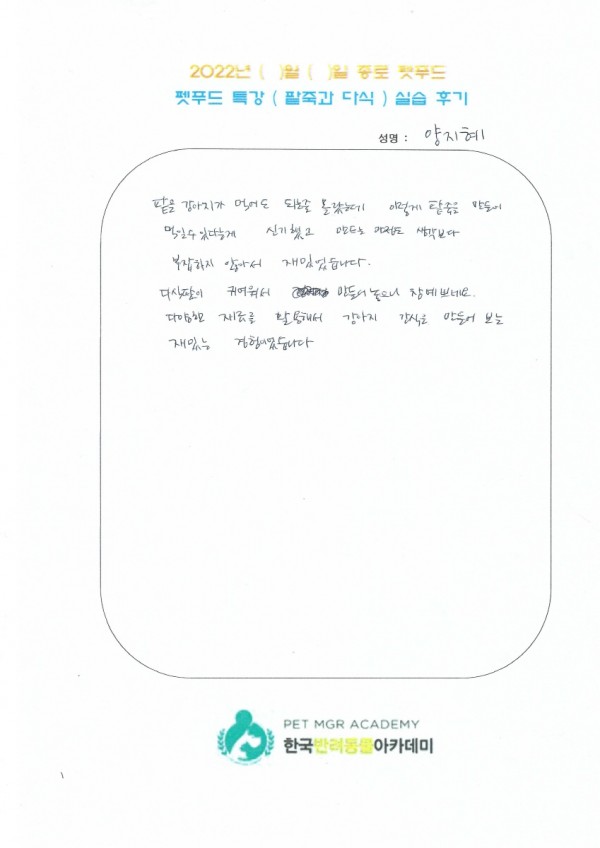 2022년 ( )월 ( )일 종로 펫푸드
펫푸드 특강 ( 팥죽과 다식 ) 실습 후기
성명 : 양지혜
팥을 강아지가 먹어도 되는줄 몰랐는데 이렇게 팥죽을 만들어
먹일수 있다는게 신기했고 만드는 과정도 생각보다
복잡하지 않아서 재밌었습니다.
다식팥이 귀여워서 만들어 놓으니 참 예쁘네요.
다양한 재료를 활용해서 강아지 간식을 만들어 보는
재밌는 경험이었습니다
PET MGR ACADEMY
한국반려동물아카데미